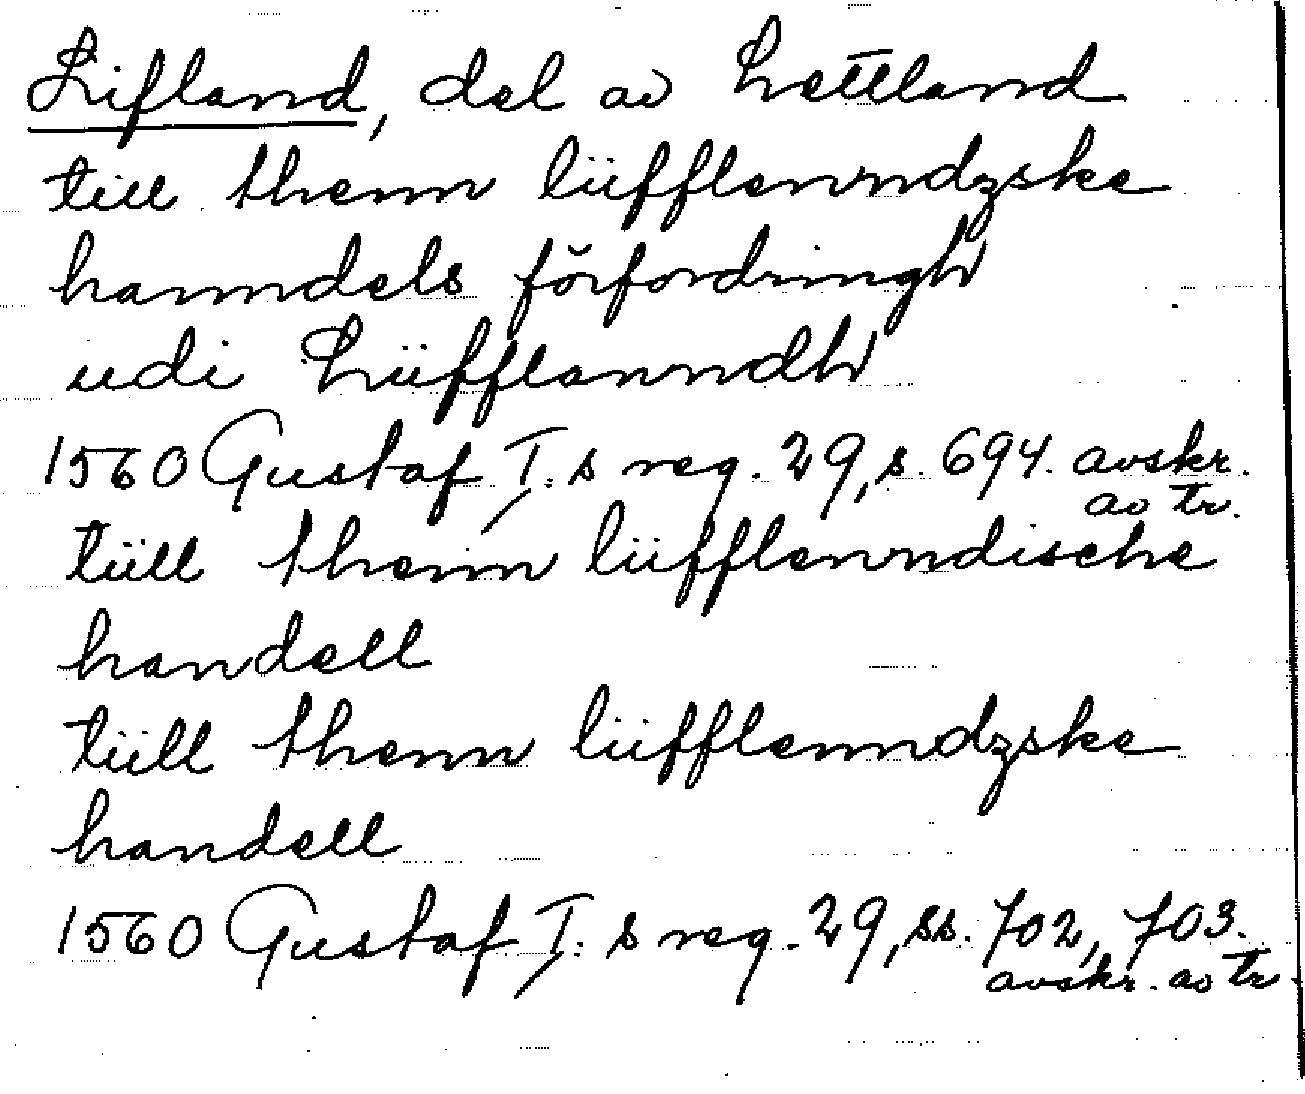 Lifland, del av Lettland
till thenn lüfflenndzske
hanndels förfordringh
udi Lüfflanndh
1560 Gustaf I:s reg. 29, s. 694. avskr.
av tr.
tüll thenn lüfflenndische
handell
tüll thenn lüfflenndzske
handell
1560 Gustaf I:s reg. 29, ss. 702, 703.
avskr. av tr.